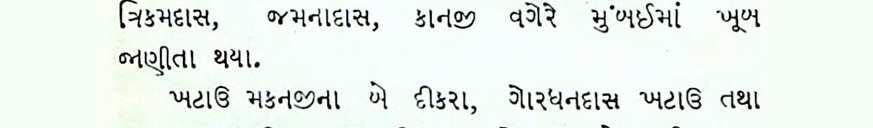 ત્રિકમદાસ, જમનાદાસ, કાનજી વગેરે મુંબઈમાં ખૂબ
જાણીતા થયા.
ખટાઉ મકનજીના બે દીકરા, ગોરધનદાસ ખટાઉ તથા